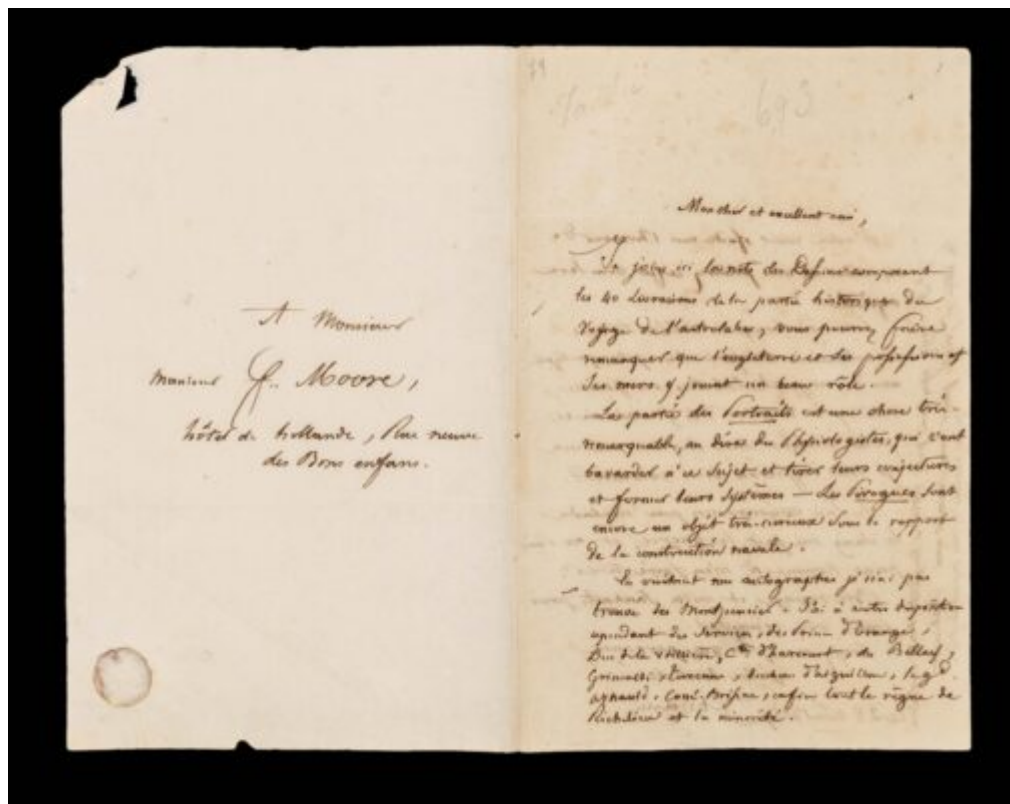 A Monsieur
Monsieur f. Moore,
hôtel de hollande, Rue neuve
des Bons enfans.
79
693
Mon cher et excellent ami,
Je joins ici la note des Dessins composant
les 40 Livraisons de la partie historique du
Voyage de l'astrolabe, vous pourrez
remarquer que l'angleterre et ses possessions et
ses mers y jouent un beau rôle.
La partie des Portraits est une chose très-
remarquable, au dire des Physiologistes, qui vont
bavarder à ce sujet et tirer leurs conjectures
et former leurs systèmes — Les Pirogues sont
encore un objet très-curieux sous le rapport
de la construction navale.
En visitant mes autographes je n'ai pas
trouvé des Montpensier - J'ai à votre disposition
cependant des Servien, des Prince d'Orange,
Duc de la Vrillière, Cte d'harcourt, du Bellay,
Grimaldi, Turenne, d'aiguillon, le gd
arnauld, Cossé-Brissac, enfin tout le règne de
Richelieu et la minorité.